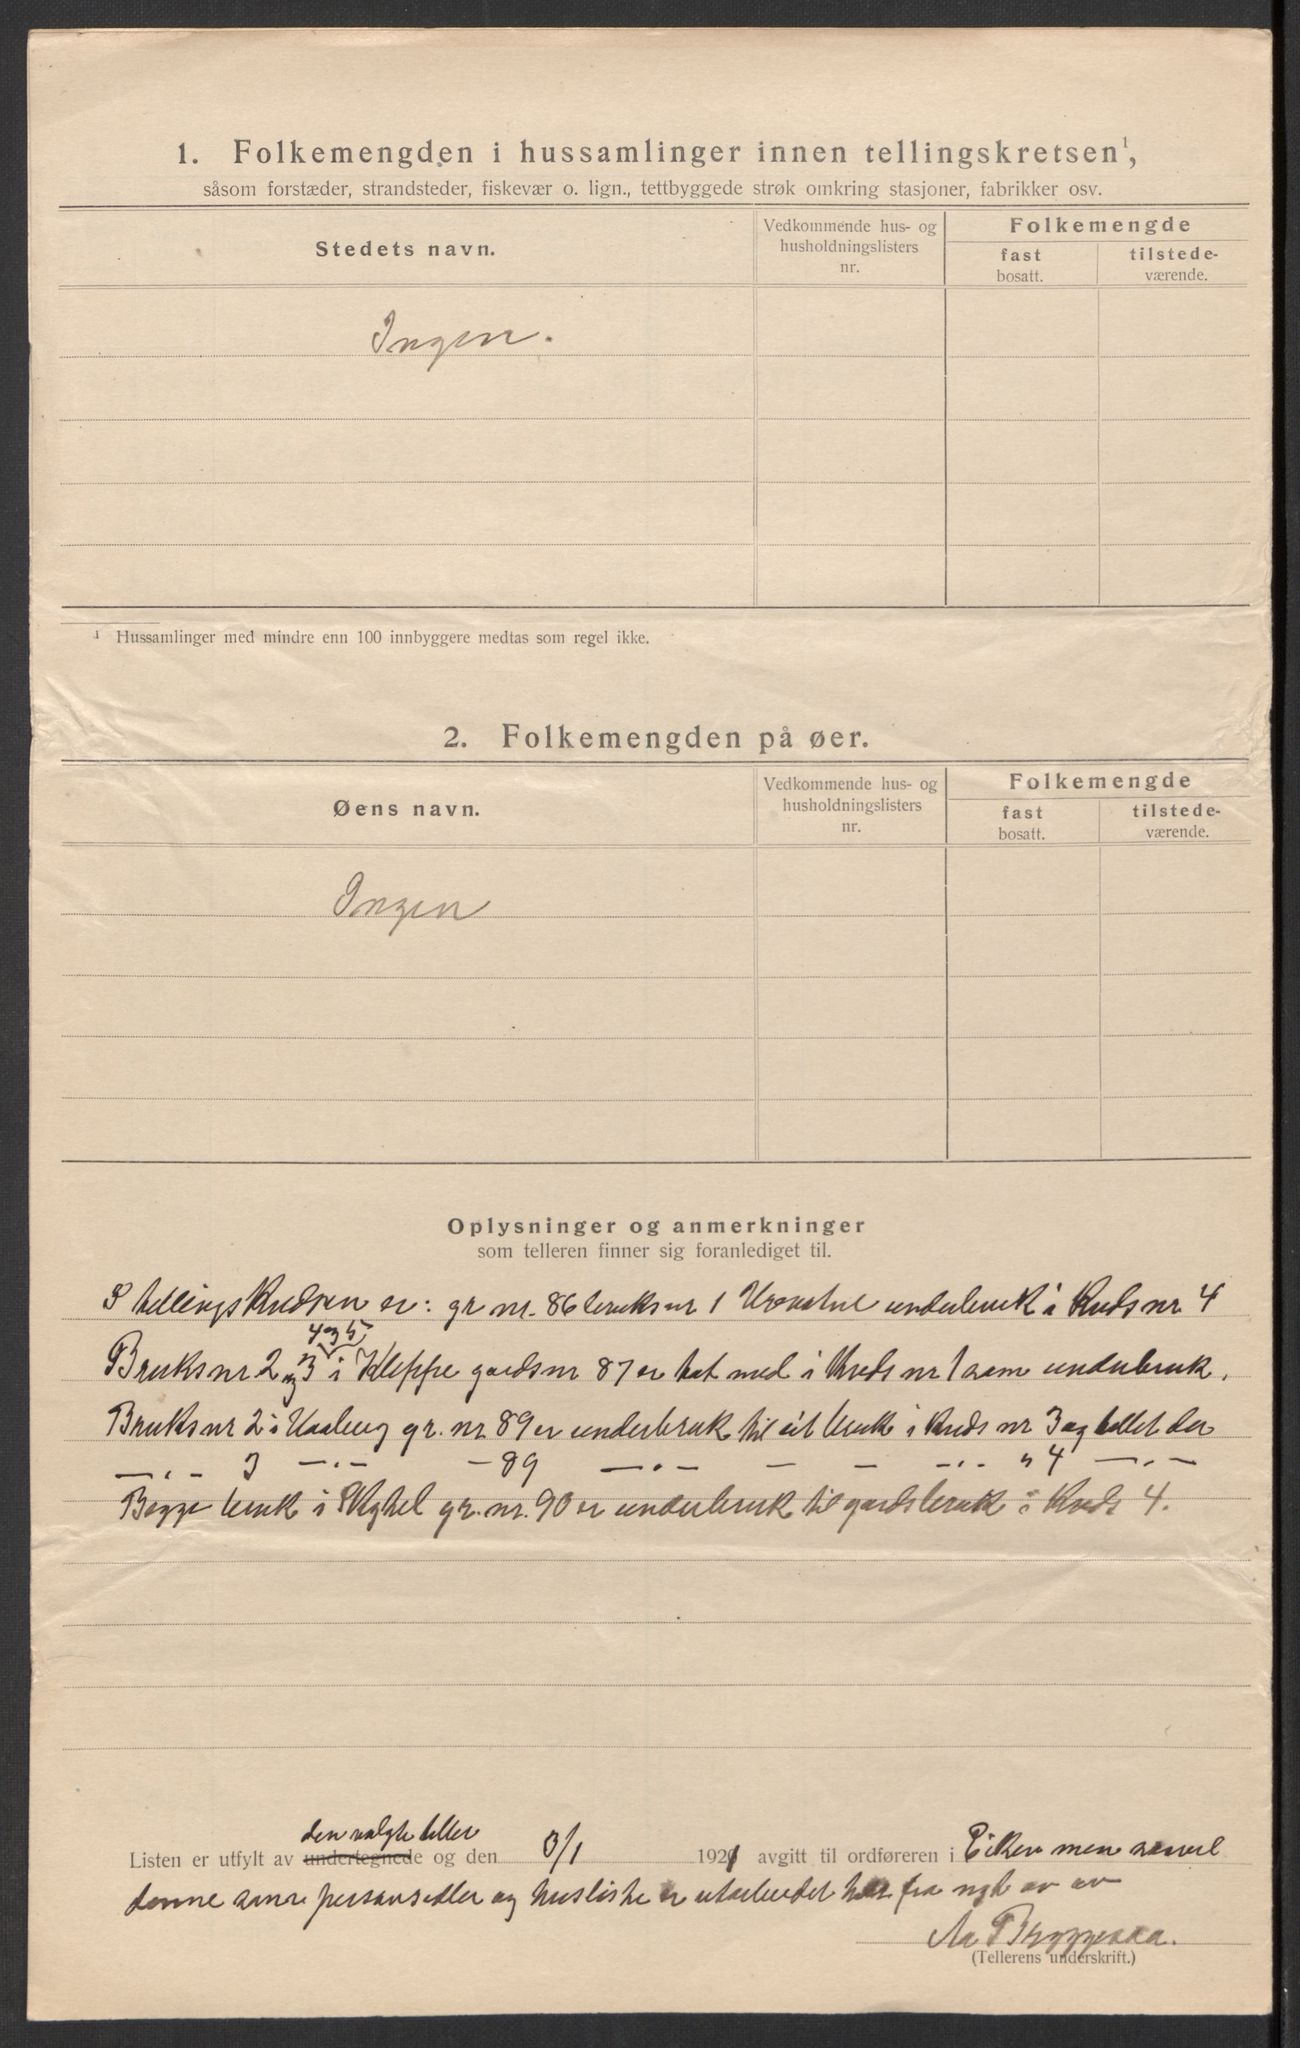 1. Folkemengden i hussamlinger innen tellingskretsen¹,
såsom forstæder, strandsteder, fiskevær o. lign., tettbyggede strøk omkring stasjoner, fabrikker osv.
Stedets navn.
Vedkommende hus- og
husholdningslisters
nr.
Folkemengde
fast
bosatt.
tilstede-
værende.
Ingen.
¹ Hussamlinger med mindre enn 100 innbyggere medtas som regel ikke.
2. Folkemengden på øer.
Øens navn.
Vedkommende hus- og
husholdningslisters
nr.
Folkemengde
fast
bosatt.
tilstede-
værende.
Ingen
Oplysninger og anmerkninger
som telleren finner sig foranlediget til.
I tellingskredsen er: gr nr. 86 bruksnr 1 underbruk i Kreds nr 4
4 og 5
Bruksnr 2 og 3 i Kleppe gardsnr 87 er tat med i Kreds nr 1 som underbruk.
Bruksnr 2 i gr. nr 89 er underbruk til eit bruk i Kreds nr 3 og tellet der
—„— 3 —„— — 89 —„— — — —„— „ 4 —„—
Begge bruk i gr. nr. 90 er underbruk til gardsbruk i Kreds 4.
den valgte teller
Listen er utfylt av undertegnede og den 3/1 1921 avgitt til ordføreren i Eiken men saavel
denne som personsedler og husliste er utarbeidet fra nyt av av
Aa Bryggesaa.
(Tellerens underskrift.)